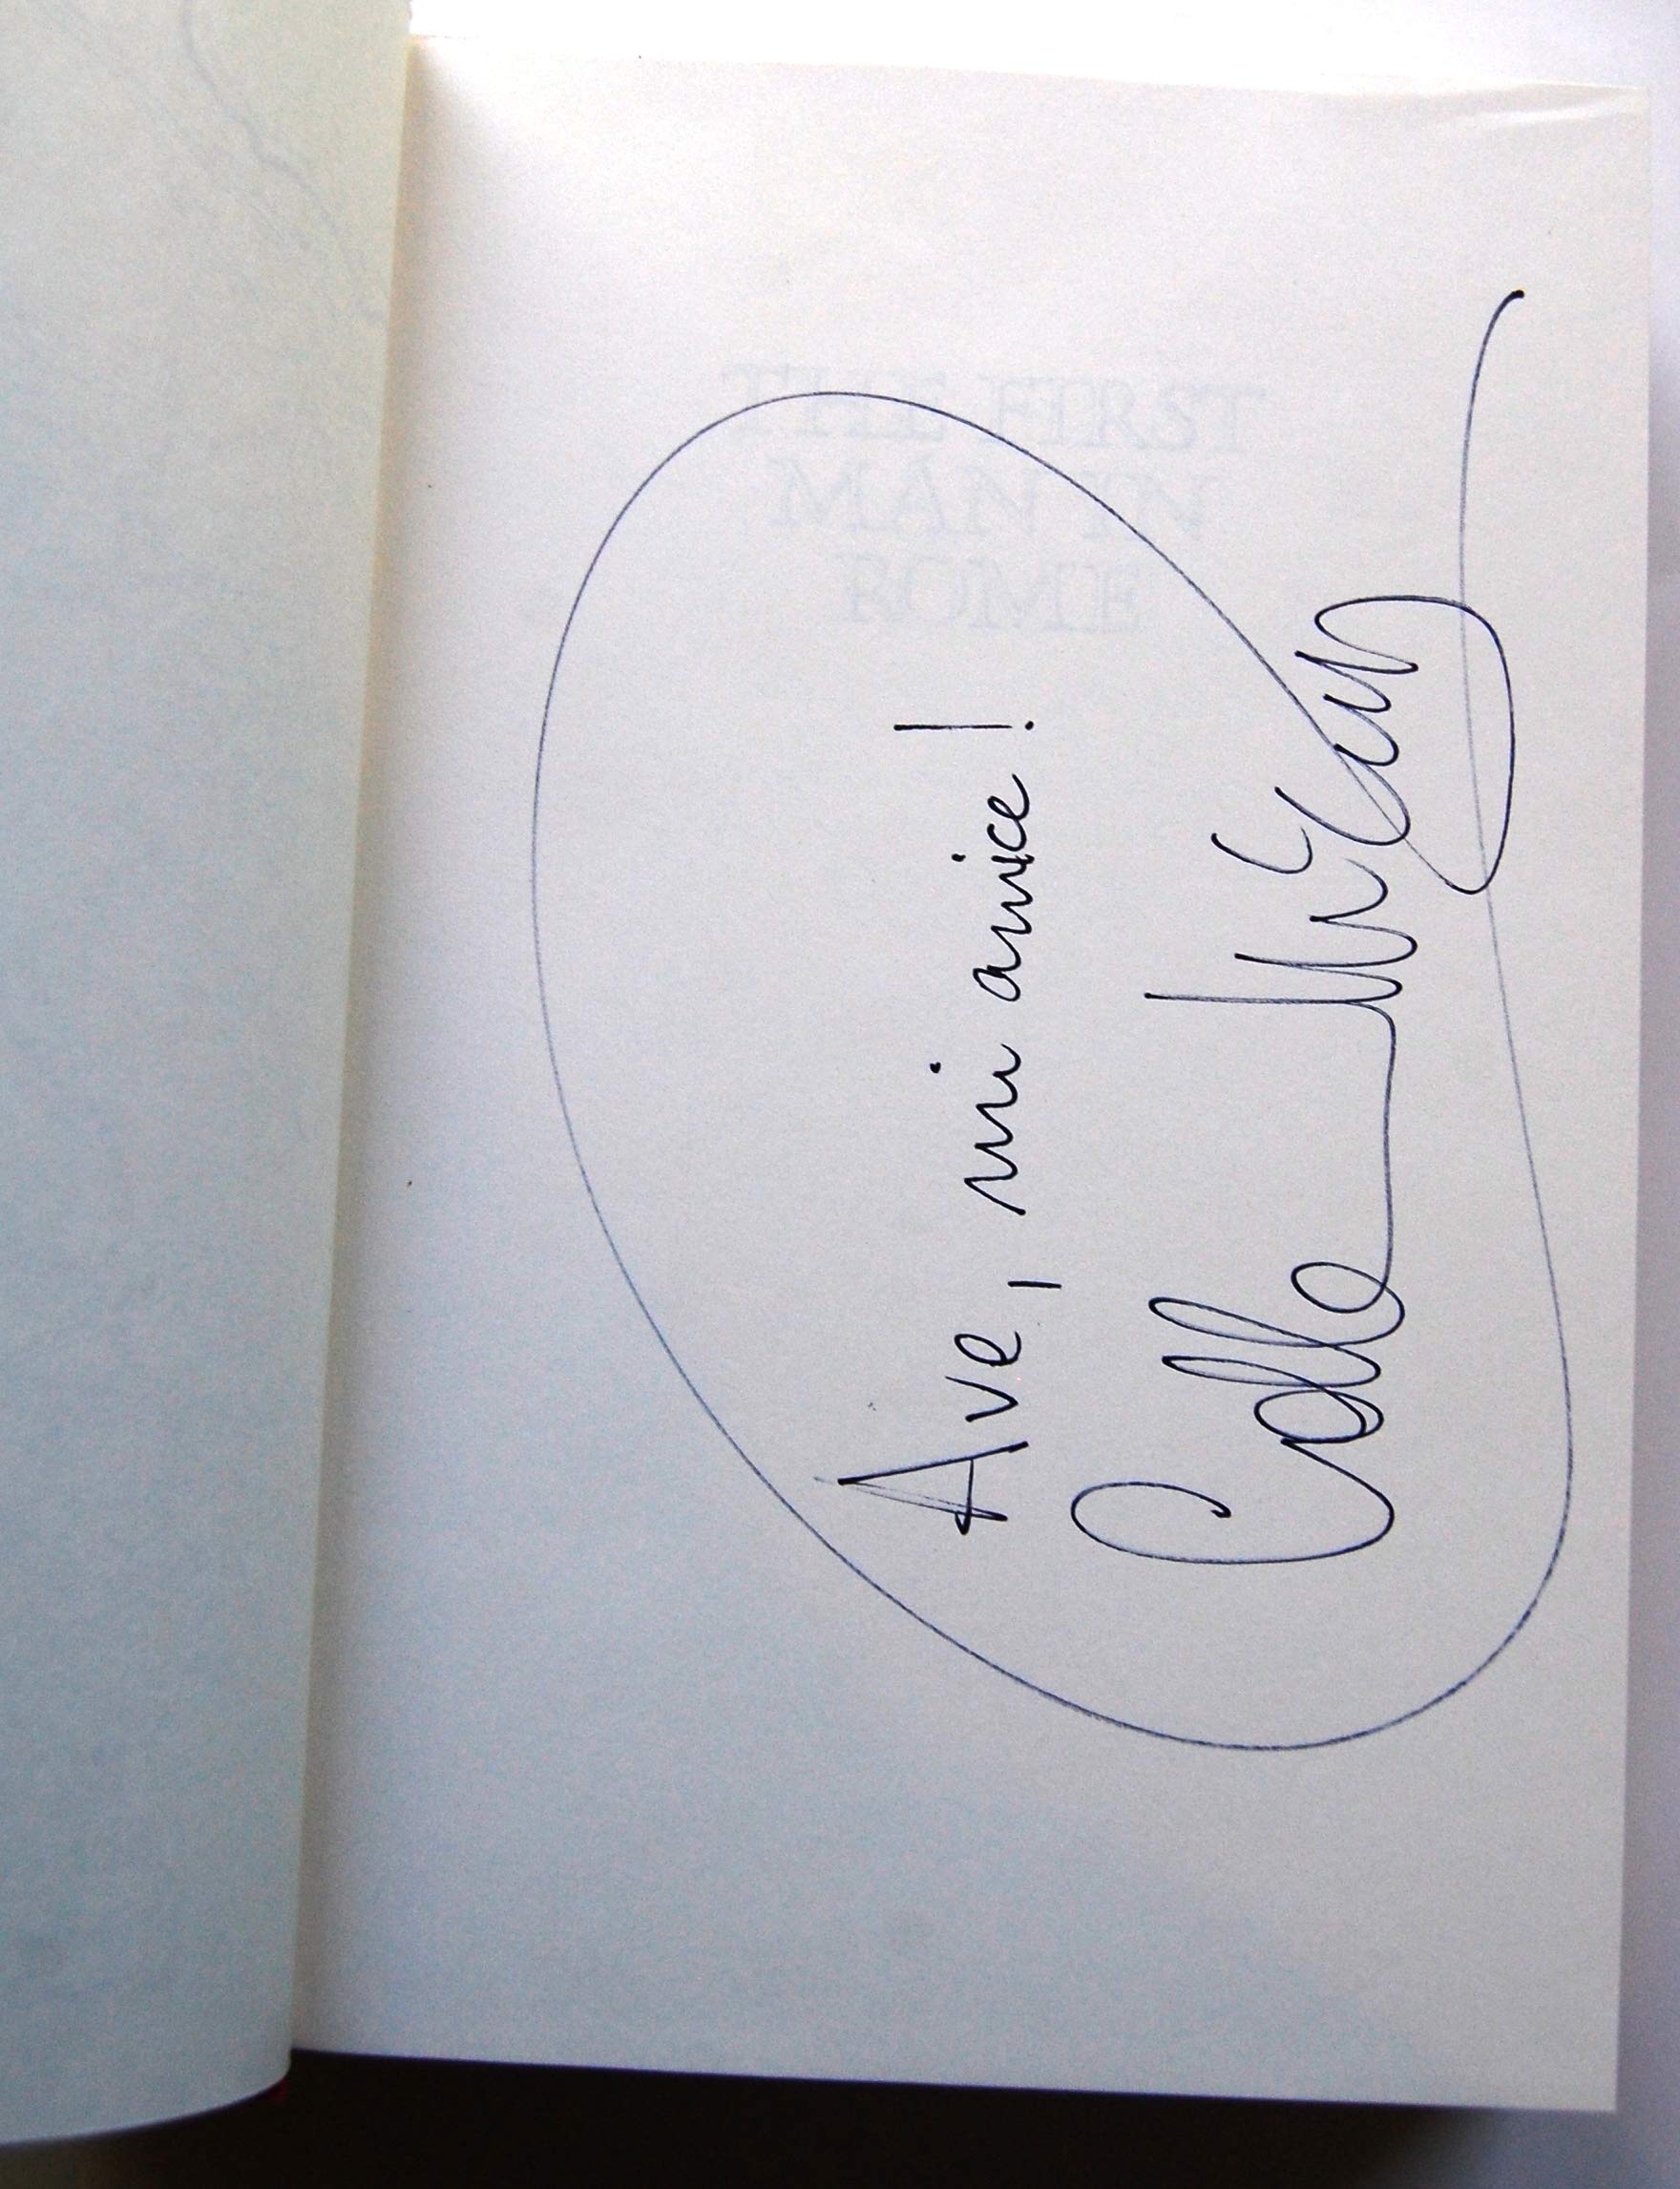 THE FIRST
MAN IN
ROME
Ave, mi amice!
Colleen McCullough